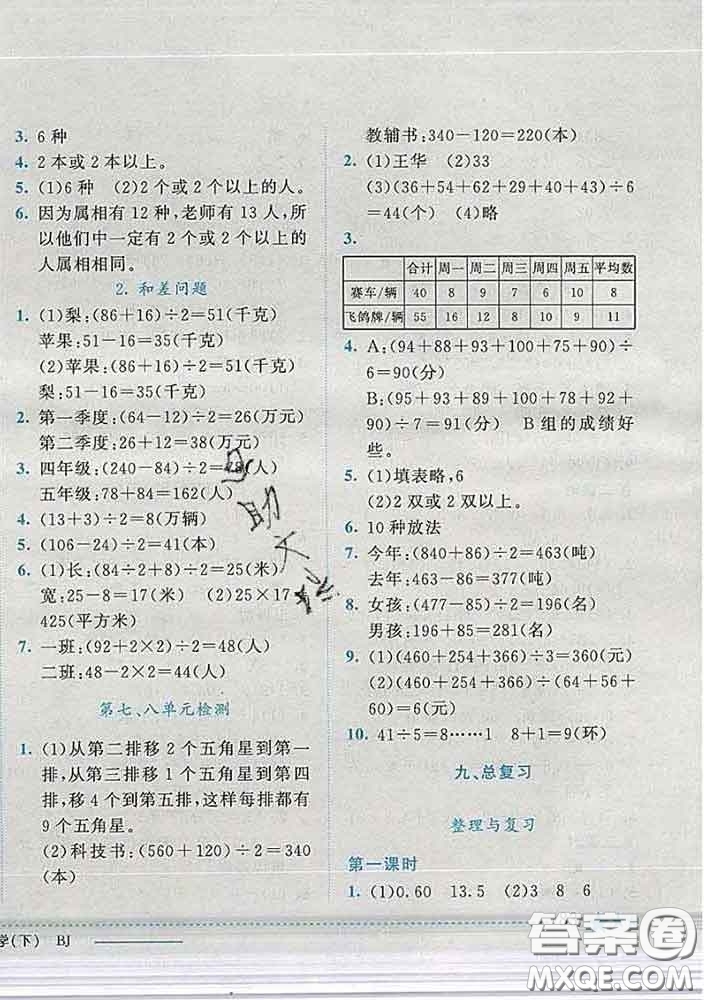 3. 6种
4. 2本或2本以上。
5. (1)6种 (2)2个或2个以上的人。
6. 因为属相有12种,老师有13人,所
以他们中一定有2个或2个以上的
人属相相同。
2. 和差问题
1. (1)梨:(86+16)÷2=51(千克)
苹果:51-16=35(千克)
(2)苹果:(86+16)÷2=51(千克)
梨:51-16=35(千克)
2. 第一季度:(64-12)÷2=26(万元)
第二季度:26+12=38(万元)
3. 四年级:(240-84)÷2=78(人)
五年级:78+84=162(人)
4. (13+3)÷2=8(万辆)
5. (106-24)÷2=41(本)
6. (1)长:(42+8)÷2=25(米)
宽:25-8=17(米) (2)25×17=
425(平方米)
7. 一班:(92+2×2)÷2=48(人)
二班:48-2×2=44(人)
第七、八单元检测
1. (1)从第二排移2个五角星到第一
排,从第三排移1个五角星到第四
排,移4个到第五排,这样每排都有
9个五角星。
(2)科技书:(560+120)÷2=340
(本)
教辅书:340-120=220(本)
2. (1)王华 (2)33
(3)(36+54+62+29+40+43)÷6
=44(个) (4)略
3.
合计 周一 周二 周三 周四 周五 平均数
赛车/辆 40 8 9 7 6 10 8
飞鸽牌/辆 55 16 12 8 10 9 11
4. A:(94+88+93+100+75+90)÷
6=90(分)
B:(93+89+94+100+78+92+
90)÷7=91(分) B组的成绩好
些。
5. (1)填表略,6
(2)2双或2双以上。
6. 10种放法
7. 今年:(840+86)÷2=463(吨)
去年:463-86=377(吨)
8. 女孩:(477-85)÷2=196(名)
男孩:196+85=281(名)
9. (1)(460+254+366)÷3=360(元)
(2)(460+254+366)÷(64+56+
60)=6(元)
10. 41÷5=8……1 8+1=9(环)
九、总复习
整理与复习
第一课时
1. (1)0.60 13.5 (2)3 8 6
学(下) BJ
答案圈
MXQE.COM